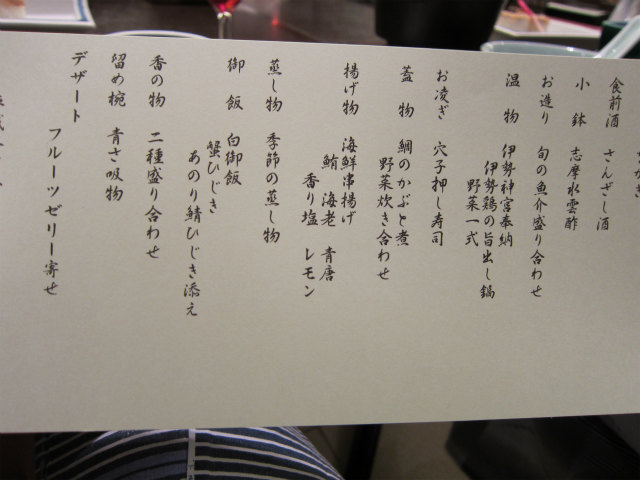 食前酒 さんざし酒
小鉢 志摩水雲酢
お造り 旬の魚介盛り合わせ
温物 伊勢神宮奉納
伊勢鶏の旨出し鍋
野菜一式
お凌ぎ 穴子押し寿司
蓋物 鯛のかぶと煮
野菜炊き合わせ
揚げ物 海鮮串揚げ
鮪 海老 青唐
香り塩 レモン
蒸し物 季節の蒸し物
御飯 白御飯
蟹ひじき
あのり鯖ひじき添え
香の物 二種盛り合わせ
留め椀 青さ吸物
デザート フルーツゼリー寄せ